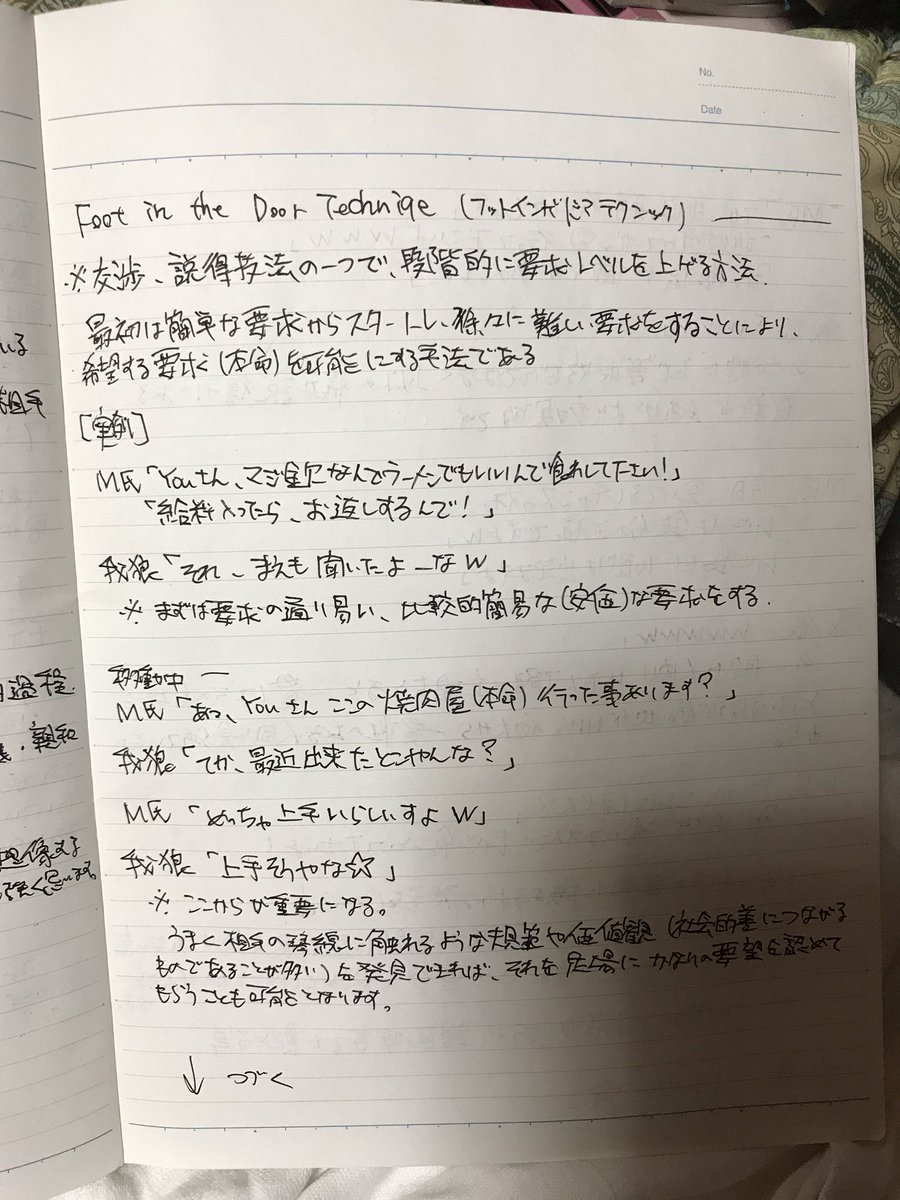 No.
Date
Foot in the Door Techniqe (フットインザドアテクニック)
※交渉、説得技法の一つで、段階的に要求レベルを上げる方法.
最初は簡単な要求からスタートし、徐々に難しい要求をすることにより、
希望する要求(本命)を可能にする手法である
[実例]
M氏「Youさん、マジ金欠なんでラーメンでもいいんで食わして下さい!」
「給料入ったら、お返しするんで!」
我狼「それ、まえも聞いたよーなW」
※まずは要求の通り易い、比較的簡易な(安価)な要求をする.
移動中 ー
M氏「あっ、Youさんここの焼肉屋(本命)行った事あります?」
我狼「てか、最近出来たとこやんな?」
M氏「めっちゃ上手いらしいすよW」
我狼「上手そうやな☆」
※ここからが重要になる。
うまく相手の琴線に触れるような規範や価値観(社会的差につながる
ものであることが多い)を発見できれば、それを足場にかなりの要望を認めて
もらうことも可能となります。
↓ つづく
いる
組手
過程
・親和
想像する
強く思います。